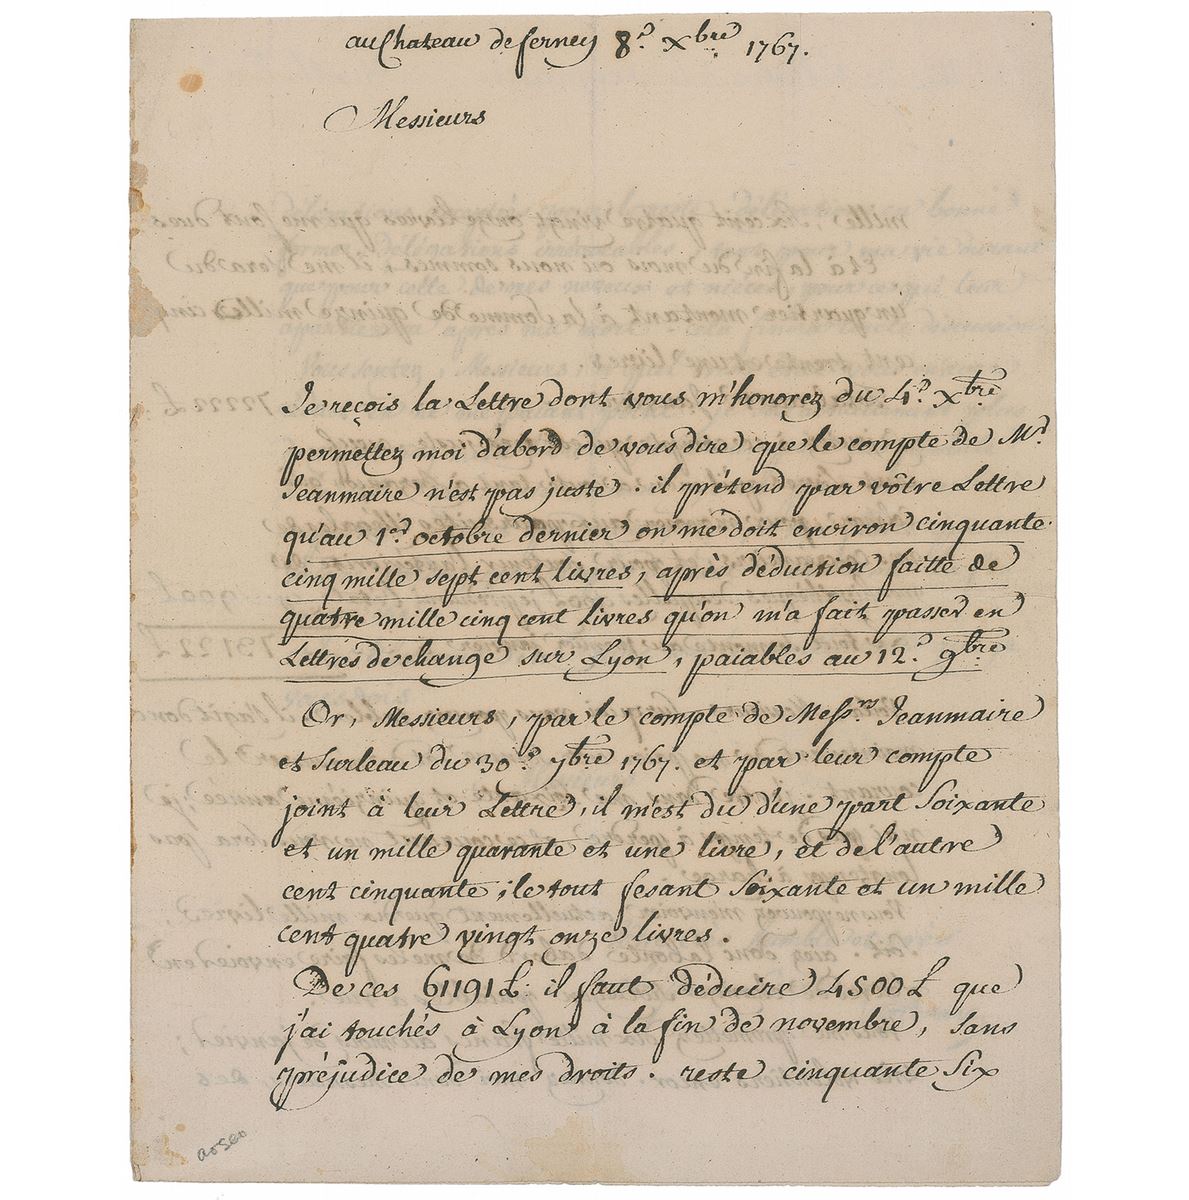 au Chateau de ferney 8.e Xbre 1767.
Messieurs
Je reçois la Lettre dont vous m'honorez du 4.e Xbre
permettez moi d'abord de vous dire que le compte de Mr.
Jeanmaire n'est pas juste. il prétend par vôtre Lettre
qu'au 1er. octobre dernier on me doit environ cinquante
cinq mille sept cent livres, après déduction faitte de
quatre mille cinq cent livres qu'on m'a fait passer en
Lettres de change sur Lyon, paiables au 12.e 9bre
Or, Messieurs, par le compte de Messrs. Jeanmaire
et Surleau du 30.e 7bre 1767. et par leur compte
joint à leur Lettre, il m'est du d'une part Soixante
et un mille quarante et une livre, et de l'autre
cent cinquante; le tout fesant Soixante et un mille
cent quatre vingt onze livres.
De ces 61191 L. il faut déduire 4500 L que
j'ai touchés à Lyon à la fin de novembre, sans
préjudice de mes droits. reste cinquante Six